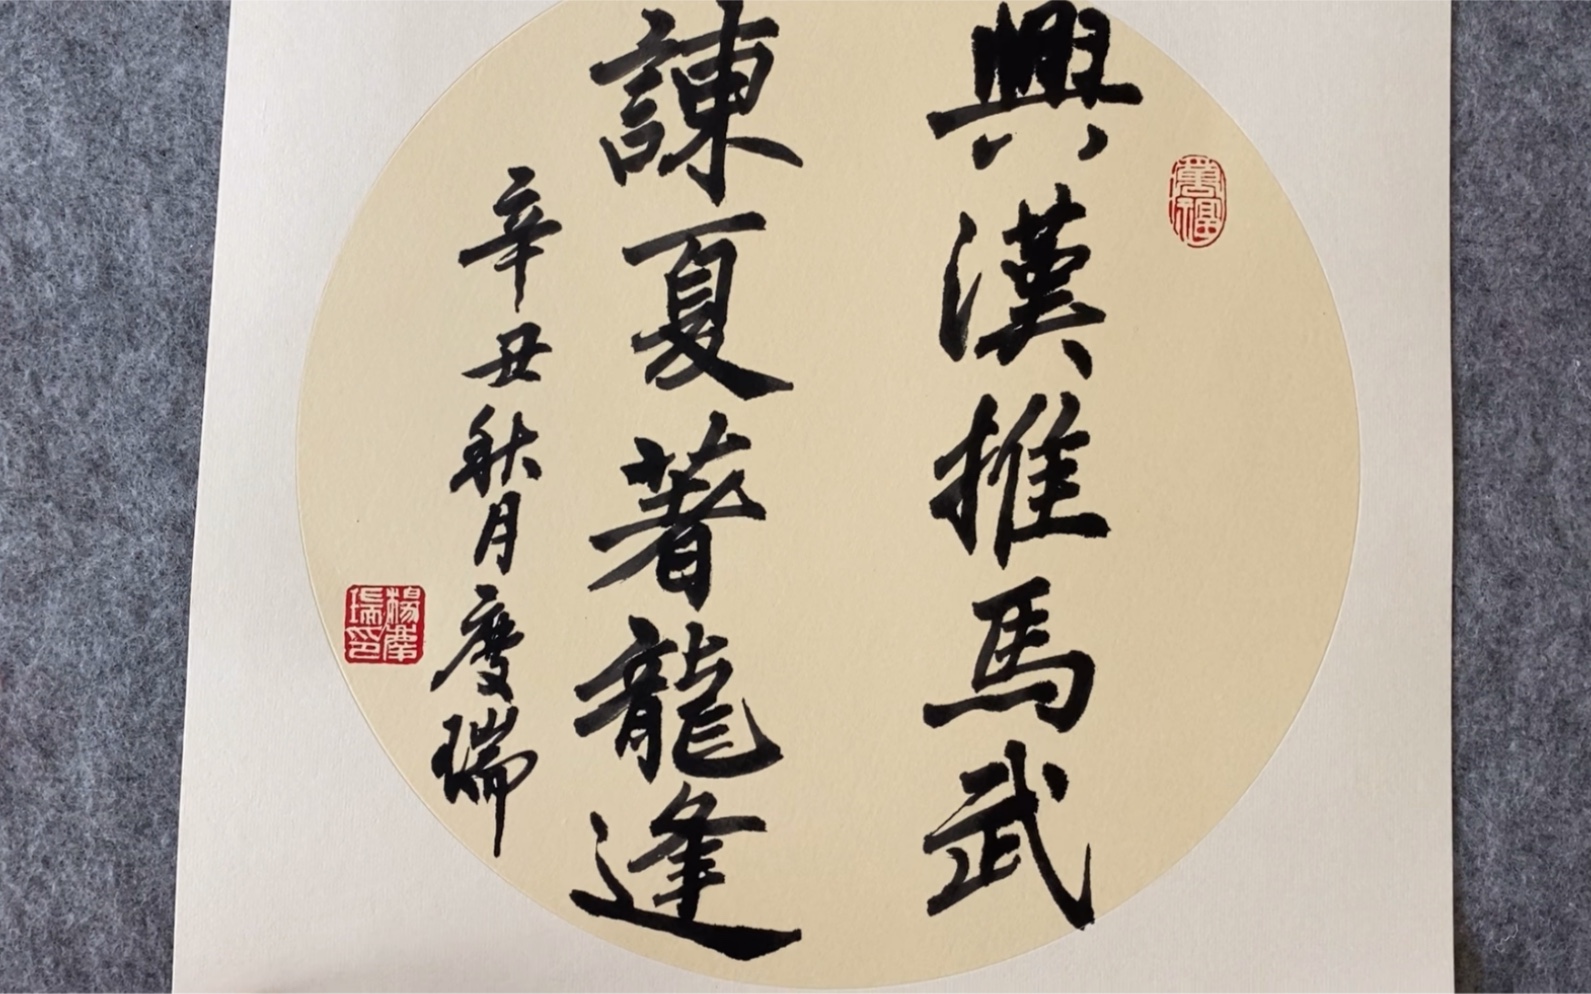 萬福
興漢推馬武
諫夏著龍逢
辛丑秋月慶瑞
楊慶瑞印